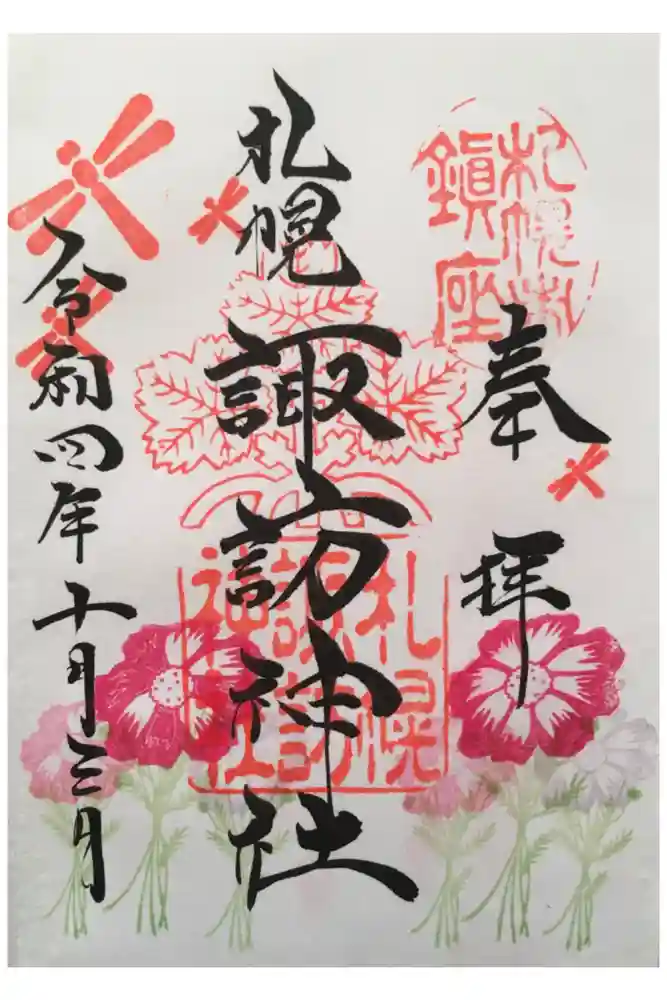 奉拝
札幌諏訪神社
令和四年十月三日
鎮座
札幌諏訪神社